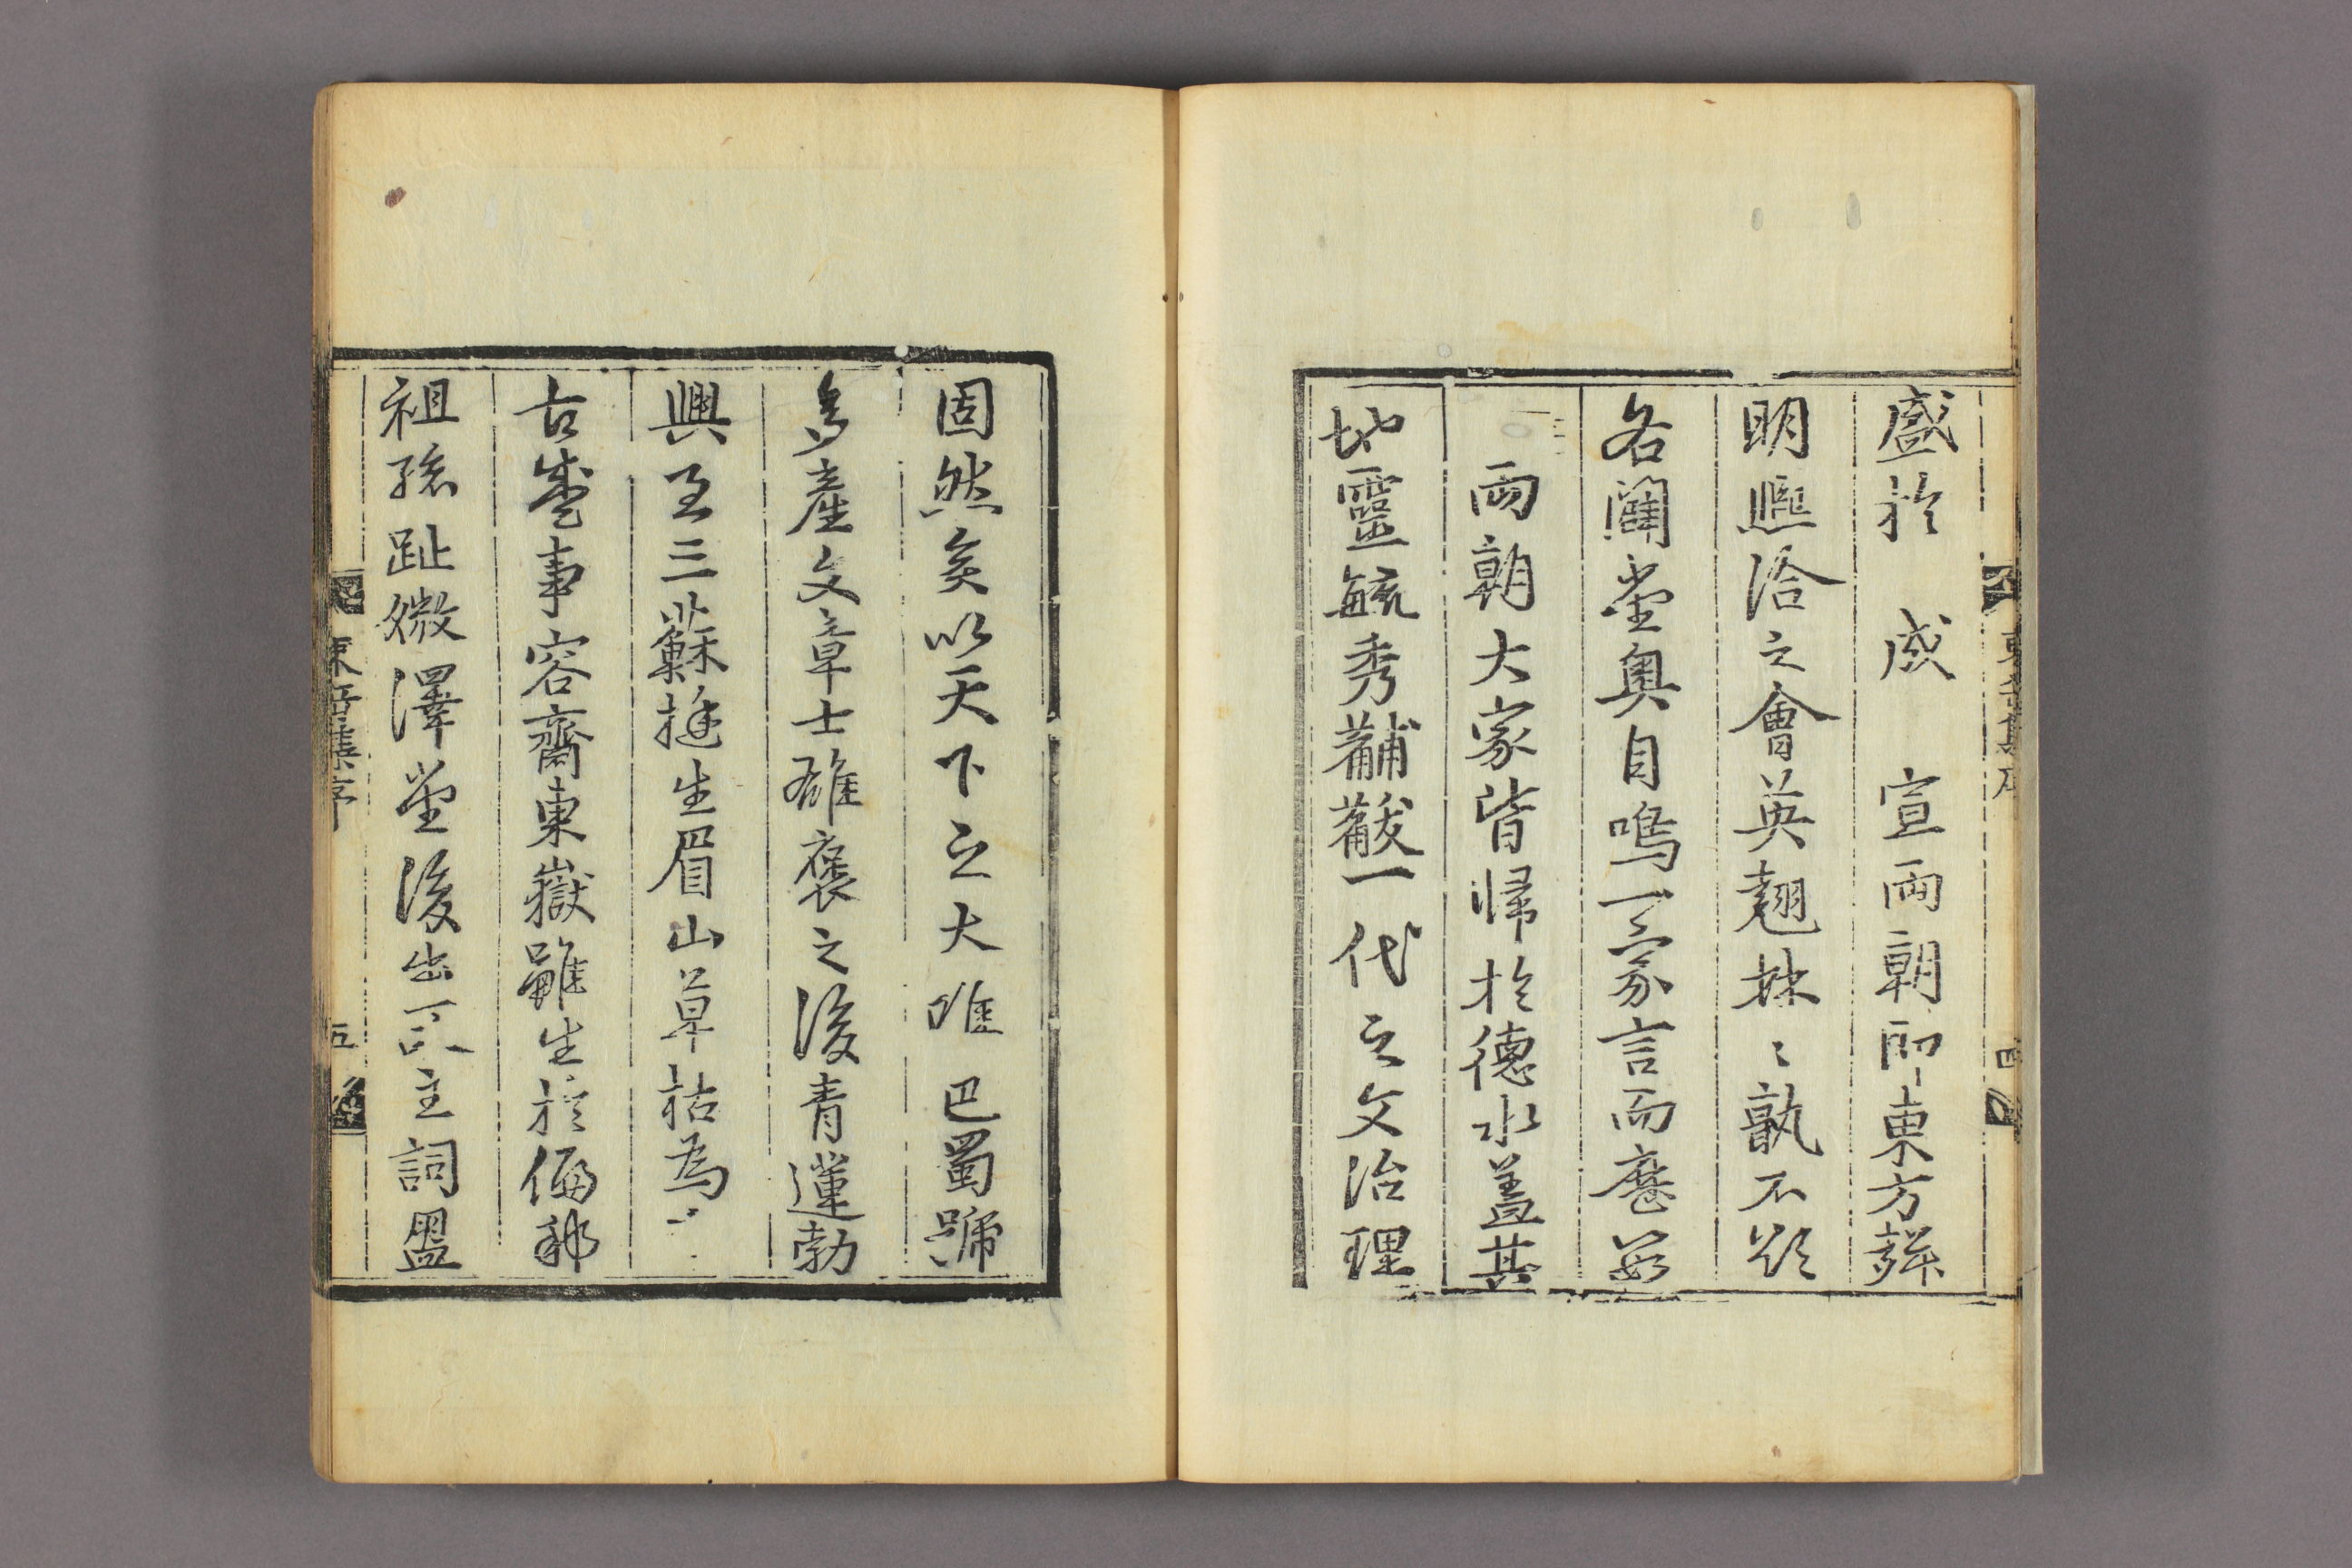 東岳集序
四
盛於 成 宣兩朝即東方
明熈洽之會英翘林〻孰不欲
各闖堂奧自鳴一家言而
兩朝大家皆归於德水盖其
地靈毓秀黼黻一代之文治理
固然矣以天下之大唯巴蜀號
多產文章士雄褒之後青蓮勃
興至三蘇挺生眉山草枯為
古盛事容齋東嶽雖生於偏邦
祖孫趾微澤堂後出而主詞盟
東岳集序
五